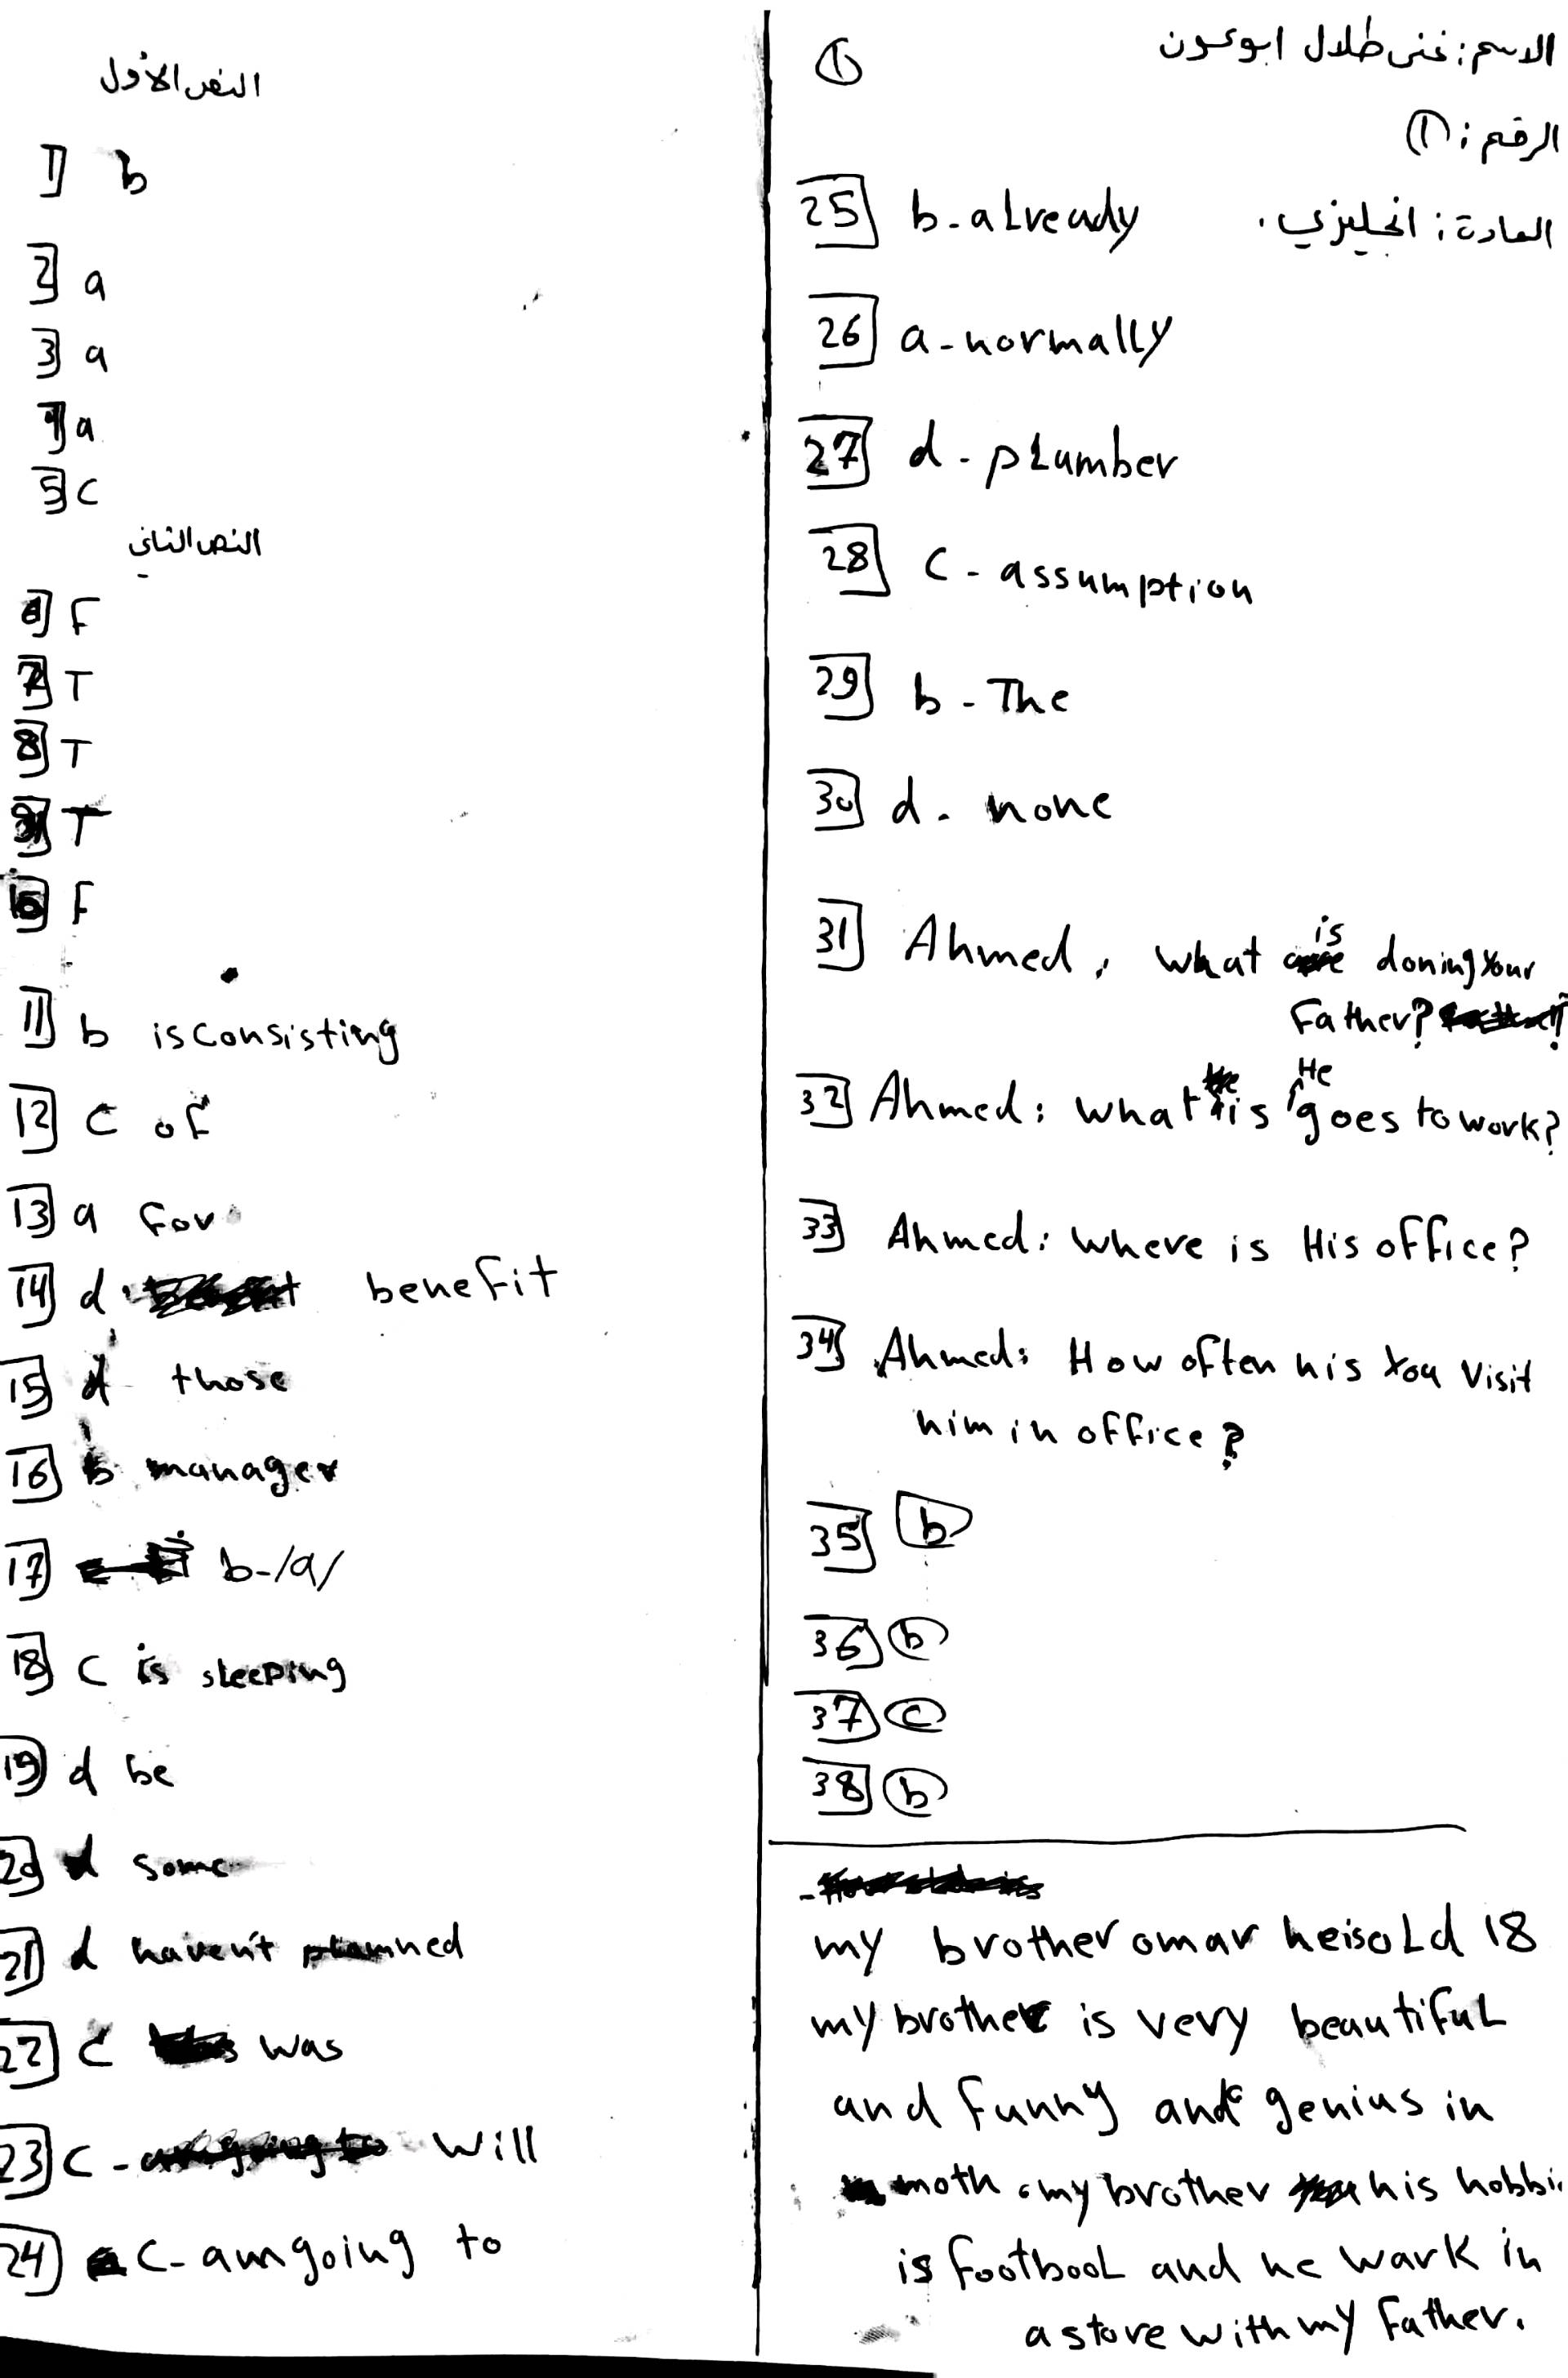 النص الأول
1] b
2] a
3] a
4] a
5] c
النص الثاني
6] F
7] T
8] T
9] T
10] F
11] b is consisting
12] c of
13] a for
14] d. benefit
15] d those
16] b manager
17] b-/a/
18] c is sleeping
19] d be
20] d some
21] d haven't planned
22] c was
23] c - will
24] c- am going to
①
الاسم: غنى طلال ابو عون
الرقم: ①
المادة: انجليزي.
25] b-already
26] a-normally
27] d - plumber
28] c - assumption
29] b - The
30] d. none
31] Ahmed, what is doning your
Father?
32] Ahmed: what is He goes to work?
33] Ahmed: where is His office?
34] Ahmed: How often his you visit
him in office?
35] b
36] b
37] c
38] b
my brother omar he is old 18
my brother is very beautiful
and funny and genius in
moth . my brother his hobbi
is footbool and he wark in
a store with my father.